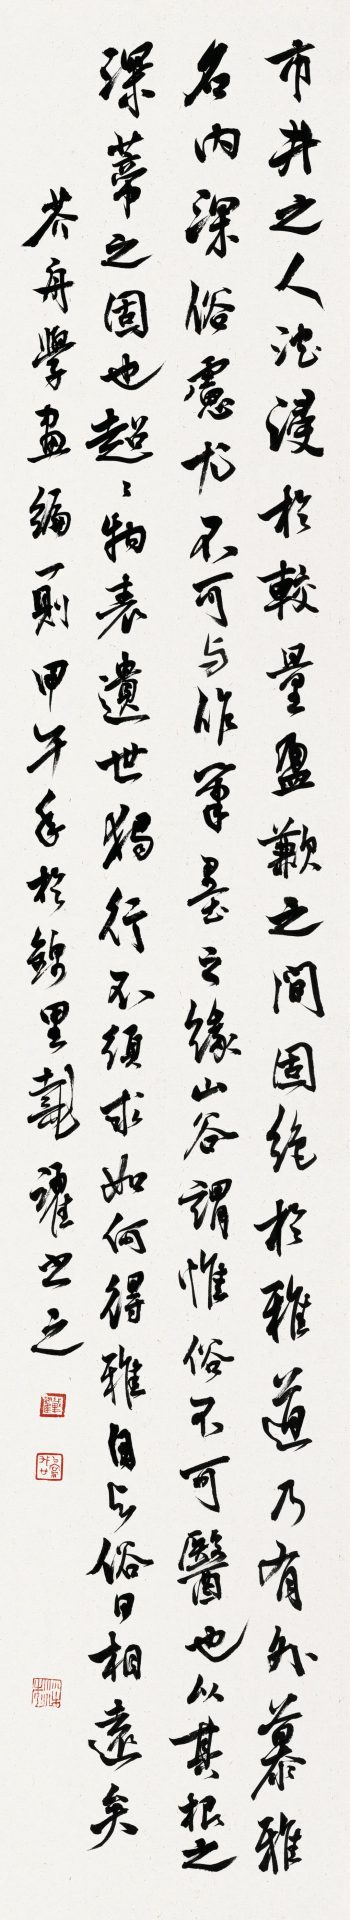 市井之人沈浸於較量盈歉之間固絶於雅道乃有外慕雅
名内深俗慮尤不可与作筆墨之緣山谷謂惟俗不可醫也以其根之
深蒂之固也超〻物表遺世獨行不須求如何得雅自与俗日相遠矣
芥舟學畫編一則甲午年於錦里戴躍书之